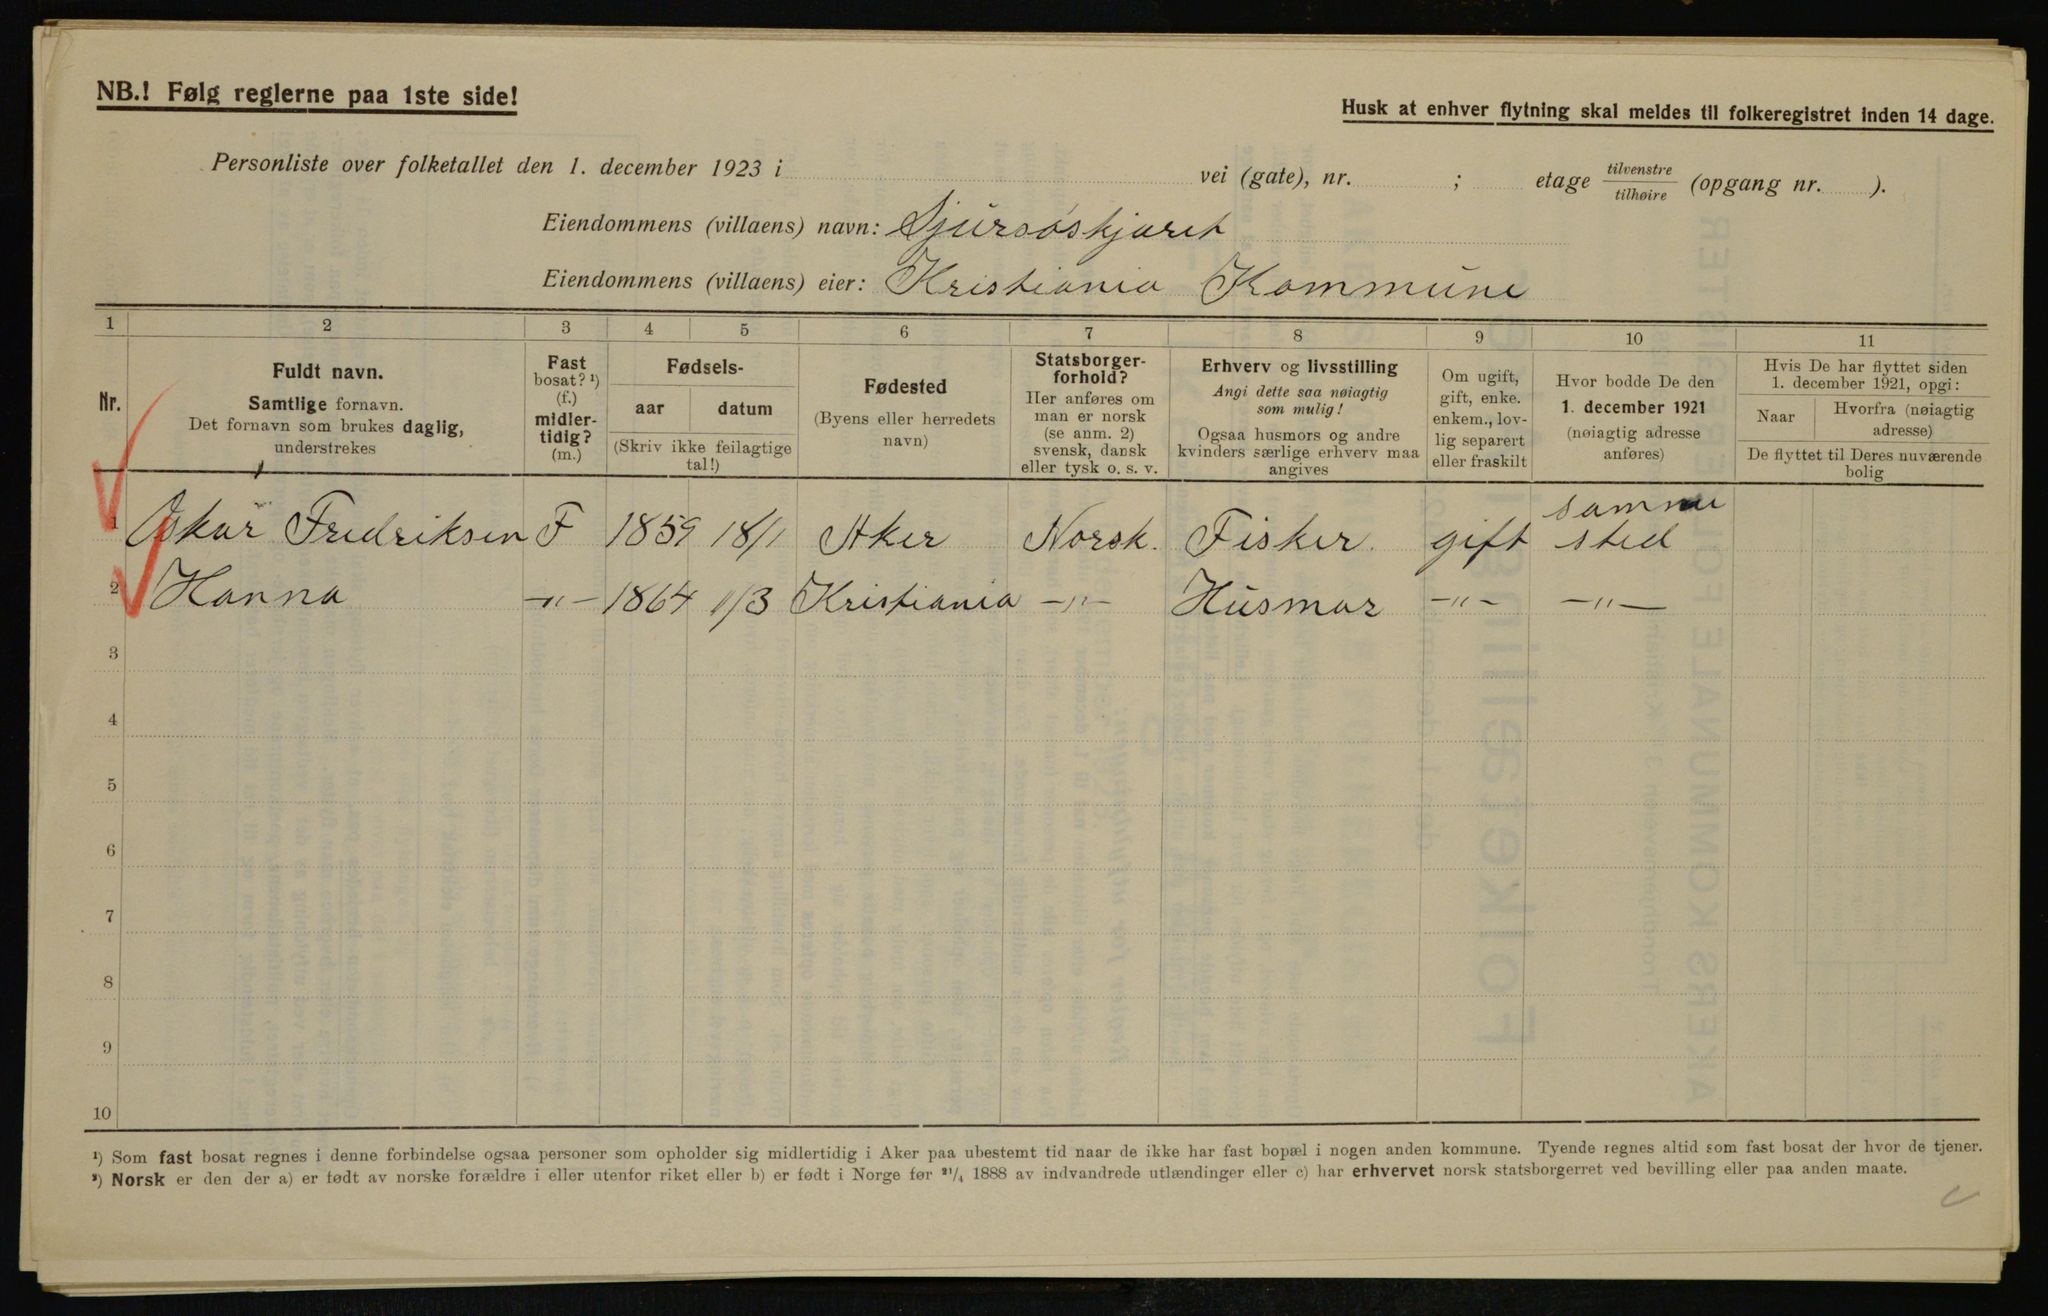 NB.! Følg reglerne paa 1ste side!
Husk at enhver flytning skal meldes til folkeregistret inden 14 dage.
Personliste over folketallet den 1. december 1923 i vei (gate), nr. ; etage tilvenstre/tilhøire (opgang nr. ).
Eiendommens (villaens) navn: Sjursøskjæret
Eiendommens (villaens) eier: Kristiania Kommune
1 2 3 4 5 6 7 8 9 10 11
Nr.
Fuldt navn.
Samtlige fornavn.
Det fornavn som brukes daglig,
understrekes
Fast
bosat? ¹)
(f.)
midler-
tidig?
(m.)
Fødsels-
aar datum
(Skriv ikke feilagtige
tal!)
Fødested
(Byens eller herredets
navn)
Statsborger-
forhold?
Her anføres om
man er norsk
(se anm. 2)
svensk, dansk
eller tysk o. s. v.
Erhverv og livsstilling
Angi dette saa nøiagtig
som mulig!
Ogsaa husmors og andre
kvinders særlige erhverv maa
angives
Om ugift,
gift, enke.
enkem., lov-
lig separert
eller fraskilt
Hvor bodde De den
1. december 1921
(nøiagtig adresse
anføres)
Hvis De har flyttet siden
1. december 1921, opgi:
Naar
Hvorfra (nøiagtig
adresse)
De flyttet til Deres nuværende
bolig
1 Oskar Fredriksen F 1859 18/1 Aker Norsk. Fisker. gift samme sted
2 Hanna -"- 1864 11/3 Kristiania -"- Husmor -"- -"-
3
4
5
6
7
8
9
10
¹) Som fast bosat regnes i denne forbindelse ogsaa personer som opholder sig midlertidig i Aker paa ubestemt tid naar de ikke har fast bopæl i nogen anden kommune. Tyende regnes altid som fast bosat der hvor de tjener.
²) Norsk er den der a) er født av norske forældre i eller utenfor riket eller b) er født i Norge før ²¹/₄ 1888 av indvandrede utlændinger eller c) har erhvervet norsk statsborgerret ved bevilling eller paa anden maate.